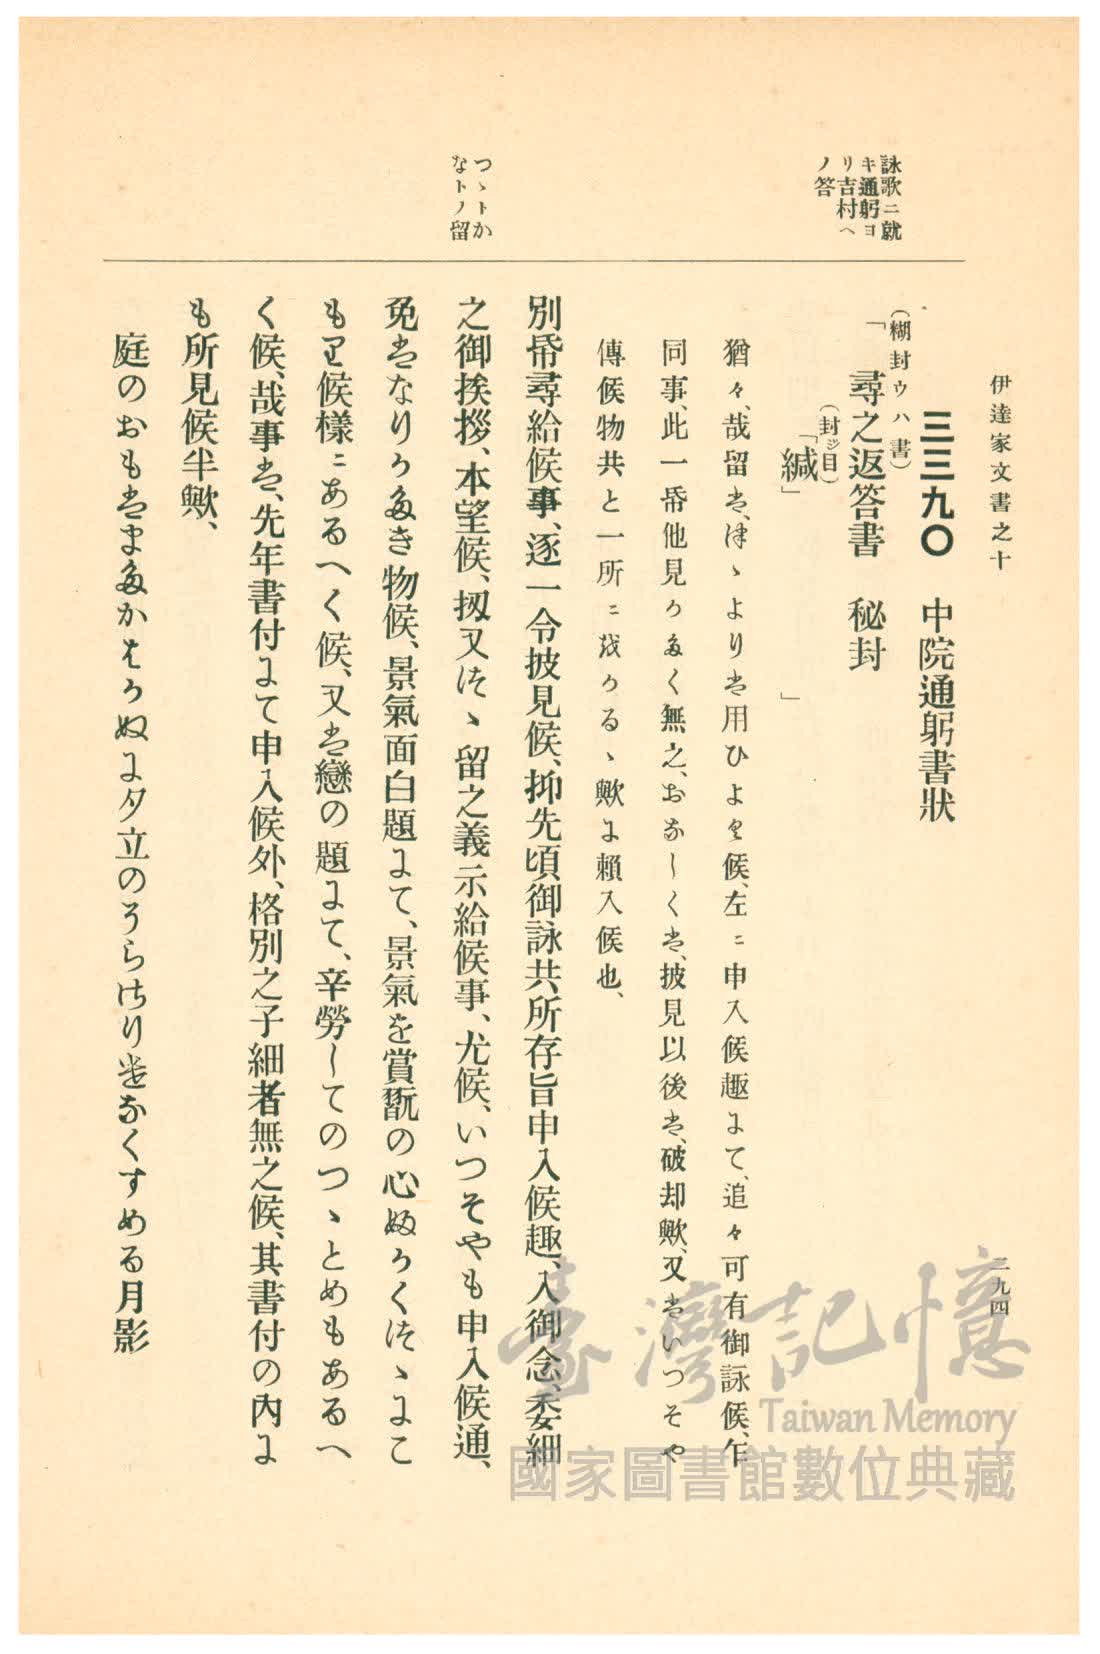 伊達家文書之十
二九四
詠歌ニ就
キ通躬ヨ
リ吉村ヘ
ノ答
つゝトか
なトノ留
三三九〇　中院通躬書狀
（糊封ウハ書）
「尋之返答書　秘封
（封ジ目）
「緘」　　　　　」
猶々、哉留は、津ゝよりは用ひよく候、左ニ申入候趣にて、追々可有御詠候、乍
同事、此一帋他見かたく無之、おなしくは、披見以後は、破却歟、又はいつそや
傳候物共と一所ニ被かるゝ歟に賴入候也、
別帋尋給候事、逐一令披見候、抑先頃御詠共、所存旨申入候趣、入御念、委細
之御挨拶、本望候、扨又つゝ留之義示給候事、尤候、いつそやも申入候通、
免はなりかたき物候、景氣面白題にて、景氣を賞翫の心ぬかくつゝにこ
も已候樣ニあるへく候、又は戀の題にて、辛勞してのつゝとめもあるへ
く候、哉事は、先年書付にて申入候外、格別之子細者無之候、其書付の內に
も所見候半歟、
庭のおもはまたかはかぬに夕立のそらはりはなくすめる月影
臺灣記憶
Taiwan Memory
國家圖書館數位典藏